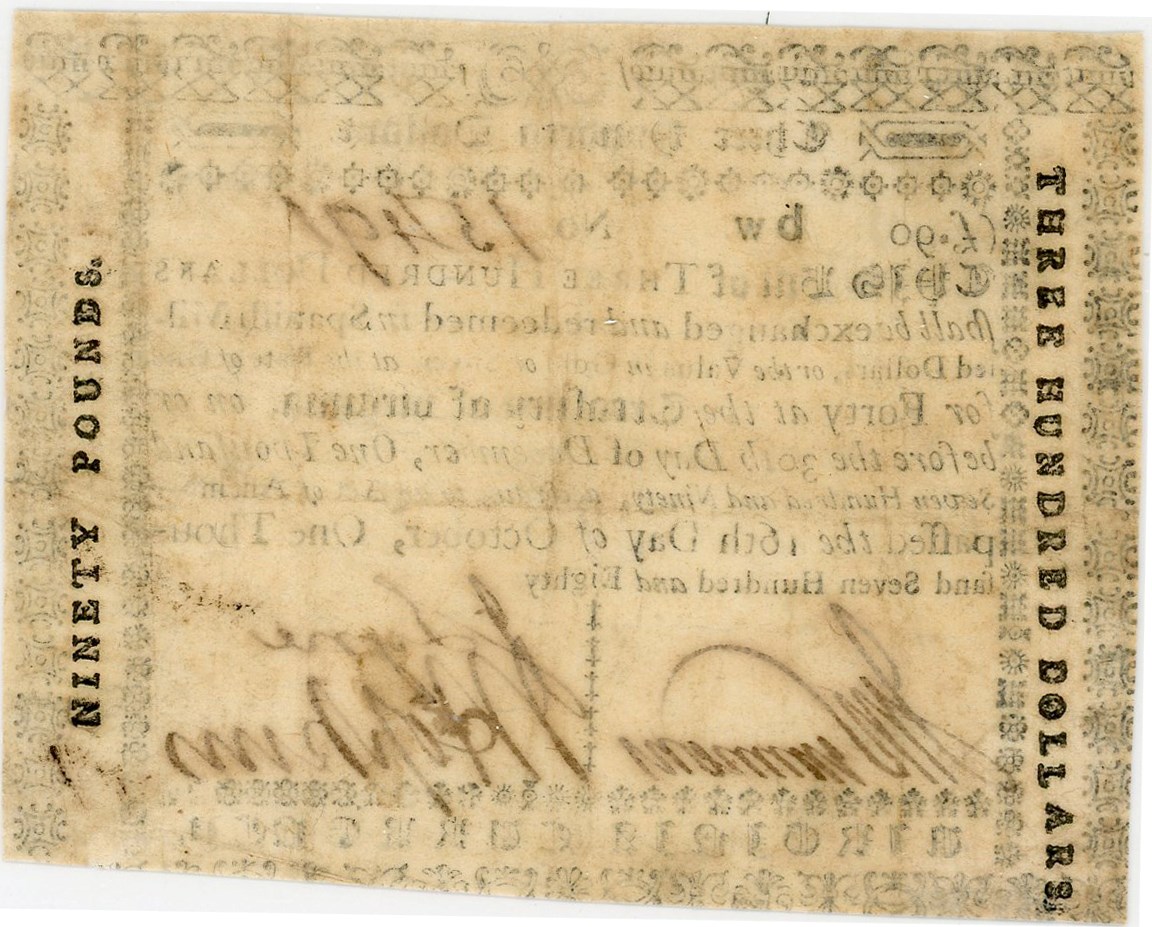 Three Hundred Dollars
(£.90 bw No. 15401
THIS Bill of THREE HUNDRED DOLLARS
ſhall be exchanged and redeemed in Spaniſh Mill-
led Dollars, or the Value in Gold or Silver, at the Rate of
for Forty at the Treaſury of Virginia, on or
before the 30th Day of December, One Thouſand
Seven Hundred and Ninety, according to an Act of Aſſem-
paſſed the 16th Day of October, One Thou-
ſand Seven Hundred and Eighty
VIRGINIA CURRENCY.
NINETY POUNDS.
THREE HUNDRED DOLLARS.